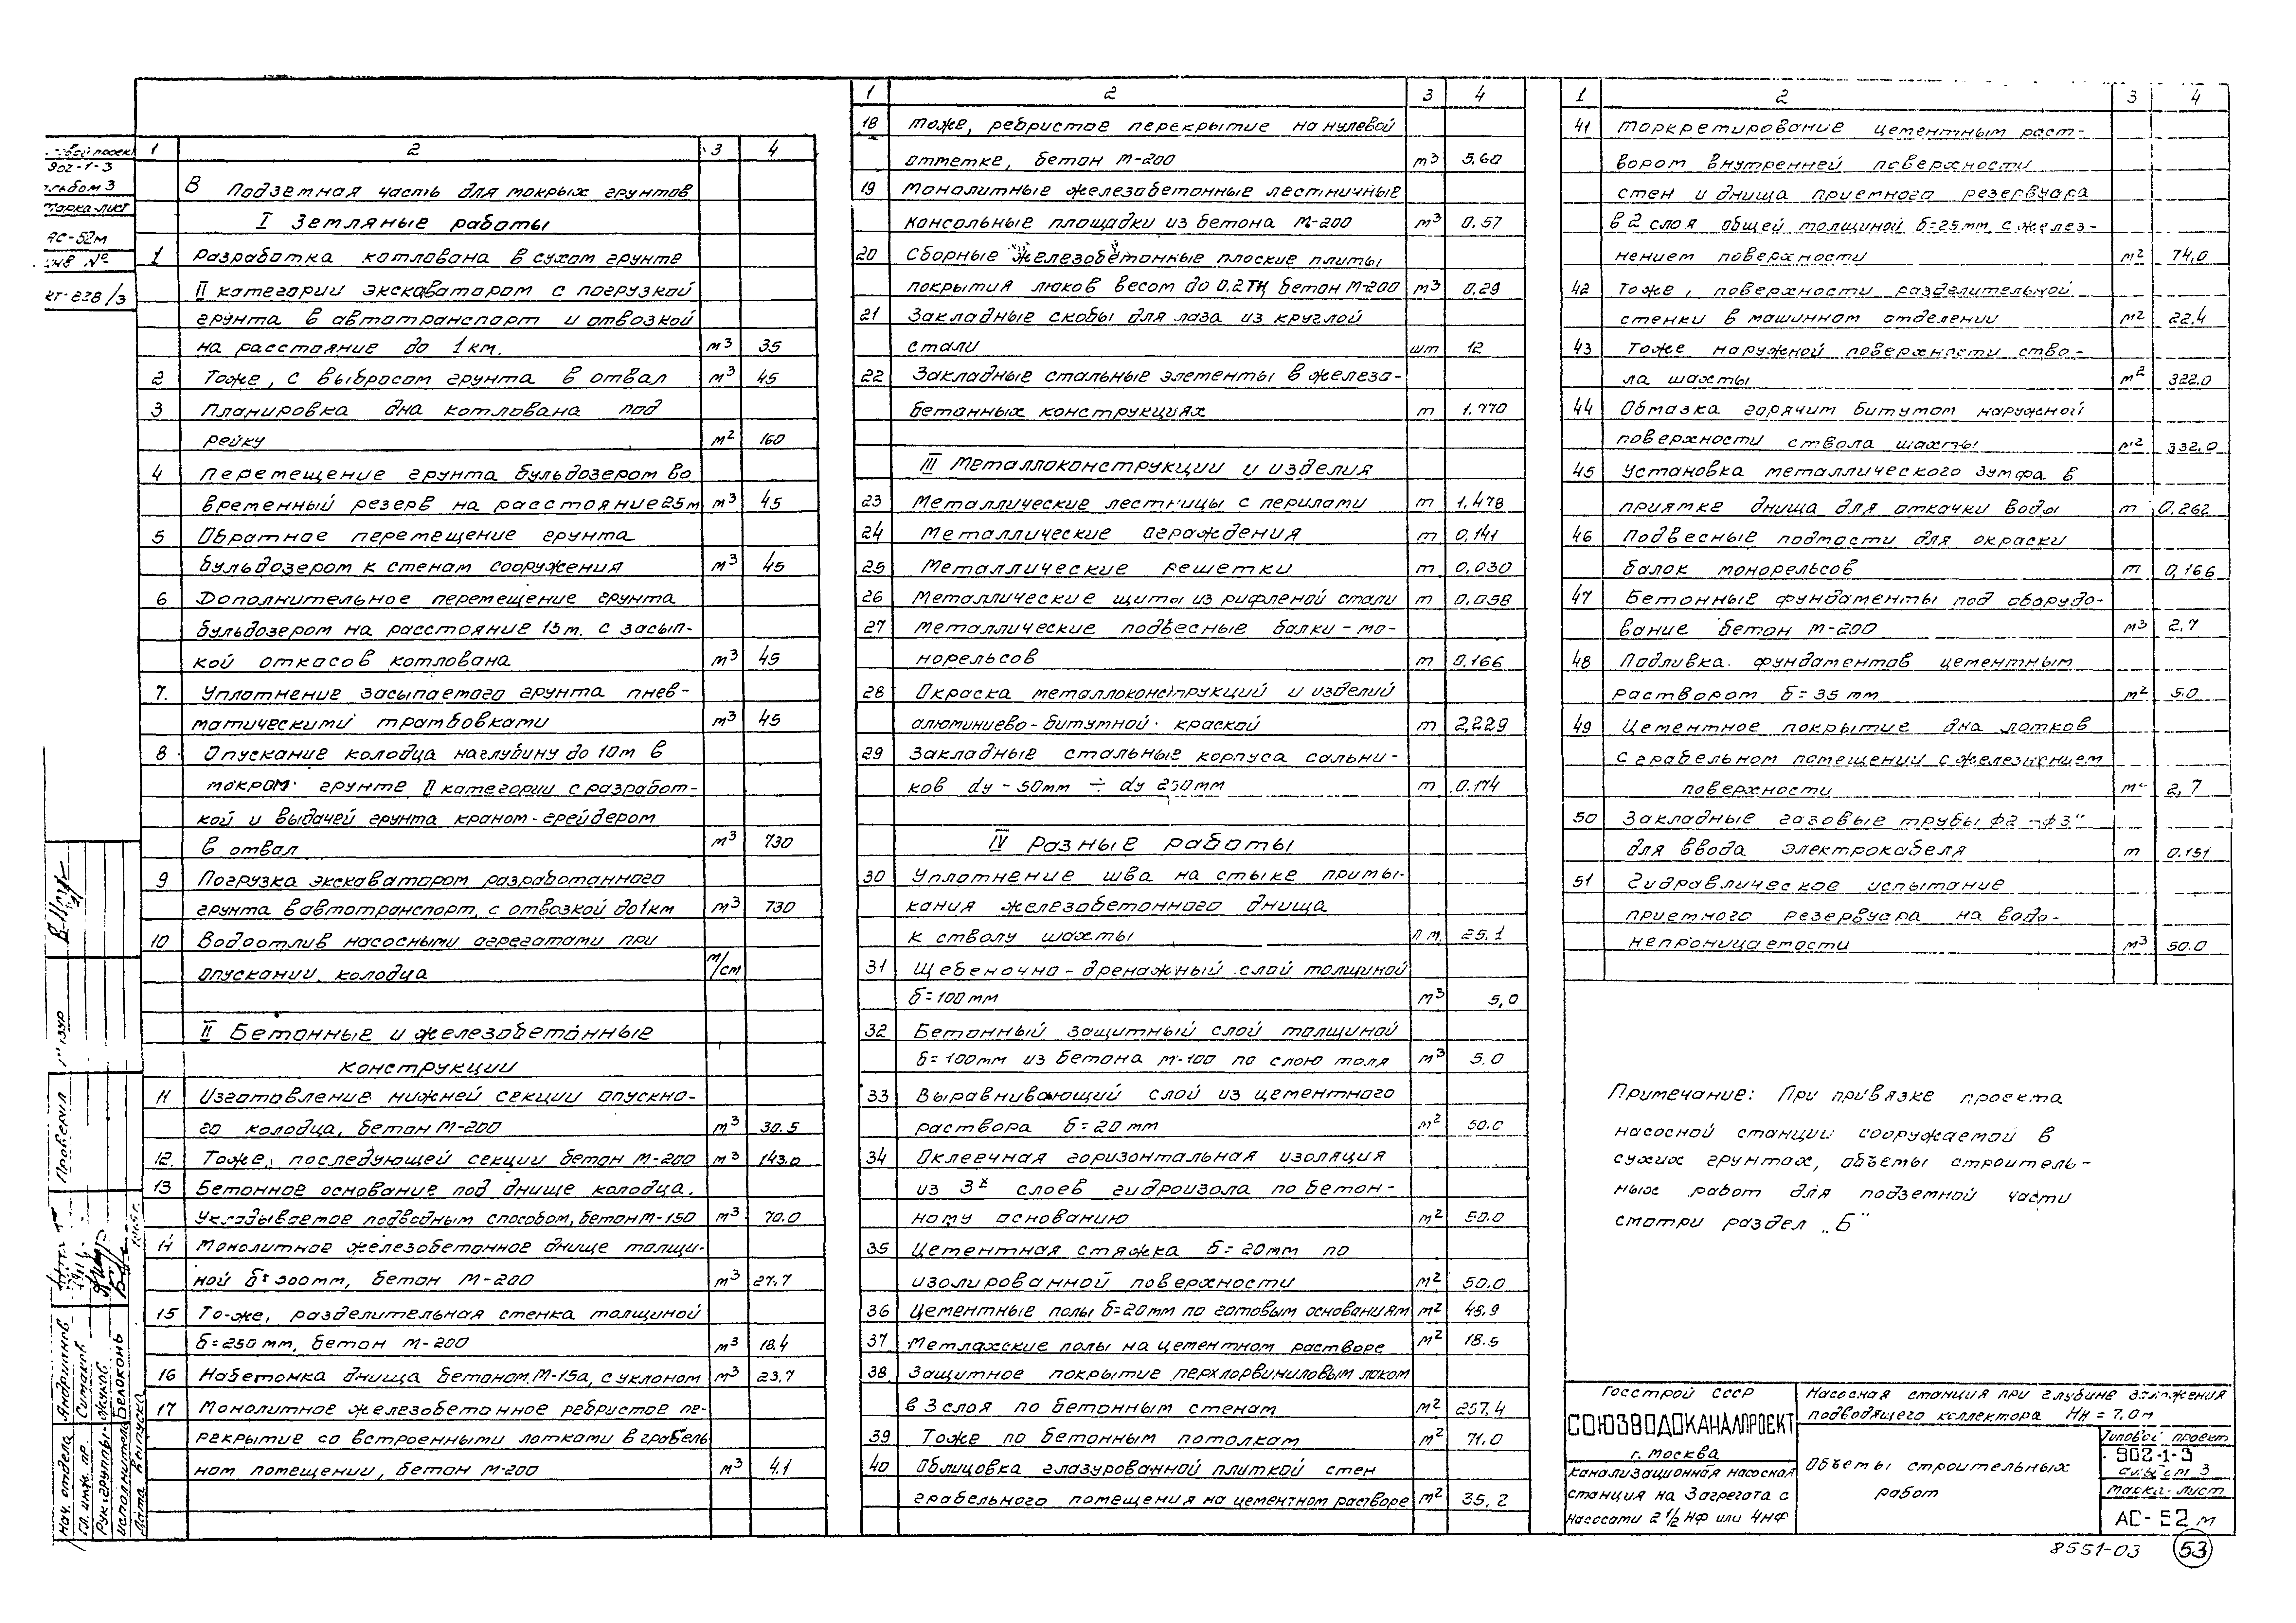 1 2 3 4
В Подземная часть для мокрых грунтов
I Земляные работы
1 Разработка котлована в сухом грунте
II категории экскаватором с погрузкой
грунта в автотранспорт и отвозкой
на расстояние до 1 км. м3 35
2 Тоже, с выбросом грунта в отвал м3 45
3 Планировка дна котлована под
рейку м2 160
4 Перемещение грунта бульдозером во
временный резерв на расстояние 25м м3 45
5 Обратное перемещение грунта
бульдозером к стенам сооружения м3 45
6 Дополнительное перемещение грунта
бульдозером на расстояние 15м. с засып-
кой откасов котлована м3 45
7. Уплотнение засыпаемого грунта пнев-
матическими трамбовками м3 45
8 Опускание колодца на глубину до 10м в
мокром грунте II категории с разработ-
кой и выдачей грунта краном-грейдером
в отвал м3 730
9 Погрузка экскаватором разработанного
грунта в автотранспорт, с отвозкой до 1 км м3 730
10 Водоотлив насосными агрегатами при
опускании колодца м/см
II Бетонные и железобетонные
конструкции
11 Изготовление нижней секции опускно-
го колодца, бетон М-200 м3 30.5
12. Тоже, последующей секции бетон М-200 м3 143.0
13 Бетонное основание под днище колодца,
укладываемое подводным способом, бетон М-150 м3 70.0
14 Монолитное железобетонное днище толщи-
ной δ=300мм, бетон М-200 м3 27.7
15 То-же, разделительная стенка толщиной
δ=250 мм, бетон М-200 м3 18.4
16 Набетонка днища бетоном, М-150, с уклоном м3 23.7
17 Монолитное железобетонное ребристое пе-
рекрытие со встроенными лотками в грабель
ном помещении, бетон М-200 м3 4.1
1 2 3 4
18 Тоже, ребристое перекрытие на нулевой
отметке, бетон М-200 м3 5.60
19 Монолитные железобетонные лестничные
консольные площадки из бетона М-200 м3 0.57
20 Сборные железобетонные плоские плиты
покрытия люков весом до 0.2тн бетон М-200 м3 0.29
21 Закладные скобы для лаза из круглой
стали шт 12
22 Закладные стальные элементы в железо-
бетонных конструкциях т 1.770
III Металлоконструкции и изделия
23 Металлические лестницы с перилами т 1.478
24 Металлические ограждения т 0.141
25 Металлические решетки т 0.030
26 Металлические щиты из рифленой стали т 0.058
27 Металлические подвесные балки-мо-
норельсов т 0.166
28 Окраска металлоконструкций и изделий
алюминиево-битумной краской т 2,229
29 Закладные стальные корпуса сальни-
ков dy-50мм ÷ dy 250мм т 0.174
IV Разные работы
30 Уплотнение шва на стыке примы-
кания железобетонного днища
к стволу шахты п.м. 25.1
31 Щебеночно-дренажный слой толщиной
δ=100мм м3 5,0
32 Бетонный защитный слой толщиной
δ=100мм из бетона М-100 по слою толя м3 5.0
33 Выравнивающий слой из цементного
раствора δ=20мм м2 50.0
34 Оклеечная горизонтальная изоляция
из 3х слоев гидроизола по бетон-
ному основанию м2 50.0
35 Цементная стяжка δ=20мм по
изолированной поверхности м2 50.0
36 Цементные полы δ=20мм по готовым основаниям м2 45.9
37 Метлахские полы на цементном растворе м2 18.5
38 Защитное покрытие перхлорвиниловым лаком
в 3 слоя по бетонным стенам м2 257,4
39 Тоже по бетонным потолкам м2 71.0
40 Облицовка глазурованной плиткой стен
грабельного помещения на цементном растворе м2 35.2
1 2 3 4
41 Торкретирование цементным раст-
вором внутренней поверхности
стен и днища приемного резервуара
в 2 слоя общей толщиной δ=25мм с желез-
нением поверхности м2 74.0
42 Тоже, поверхности разделительной
стенки в машинном отделении м2 22.4
43 Тоже наружной поверхности ство-
ла шахты м2 322.0
44 Обмазка горячим битумом наружной
поверхности ствола шахты м2 332.0
45 Установка металлического зумфа в
приямке днища для откачки воды т 0.262
46 Подвесные подмости для окраски
балок монорельсов т 0,166
47 Бетонные фундаменты под оборудо-
вание бетон М-200 м3 2.7
48 Подливка фундаментов цементным
раствором δ=35 мм м2 5.0
49 Цементное покрытие дна лотков
с грабельном помещении с железнением
поверхности м2 2,7
50 Закладные газовые трубы ф2-ф3"
для ввода электрокабеля т 0.151
51 Гидравлическое испытание
приемного резервуара на водо-
непроницаемости м3 50.0
Примечание: При привязке проекта
насосной станции сооружаемой в
сухих грунтах, объемы строитель-
ных работ для подземной части
смотри раздел „Б"
Госстрой СССР
СОЮЗВОДОКАНАЛПРОЕКТ
г. Москва
Канализационная насосная
станция на 3 агрегата с
насосами 2 1/2 НФ или 4НФ
Насосная станция при глубине заложения
подводящего коллектора Нк = 7.0м
Объемы строительных
работ
Типовой проект
902-1-3
альбом 3
марка-лист
АС-52м
8551-03 53
902-1-3
альбом 3
марка-лист
АС-52м
инв №
Проверил
Нач. отдела Андрианов
Гл. инж. пр.
Рук. группы Жуков
исполнитель Белоконь
Дата выпуска